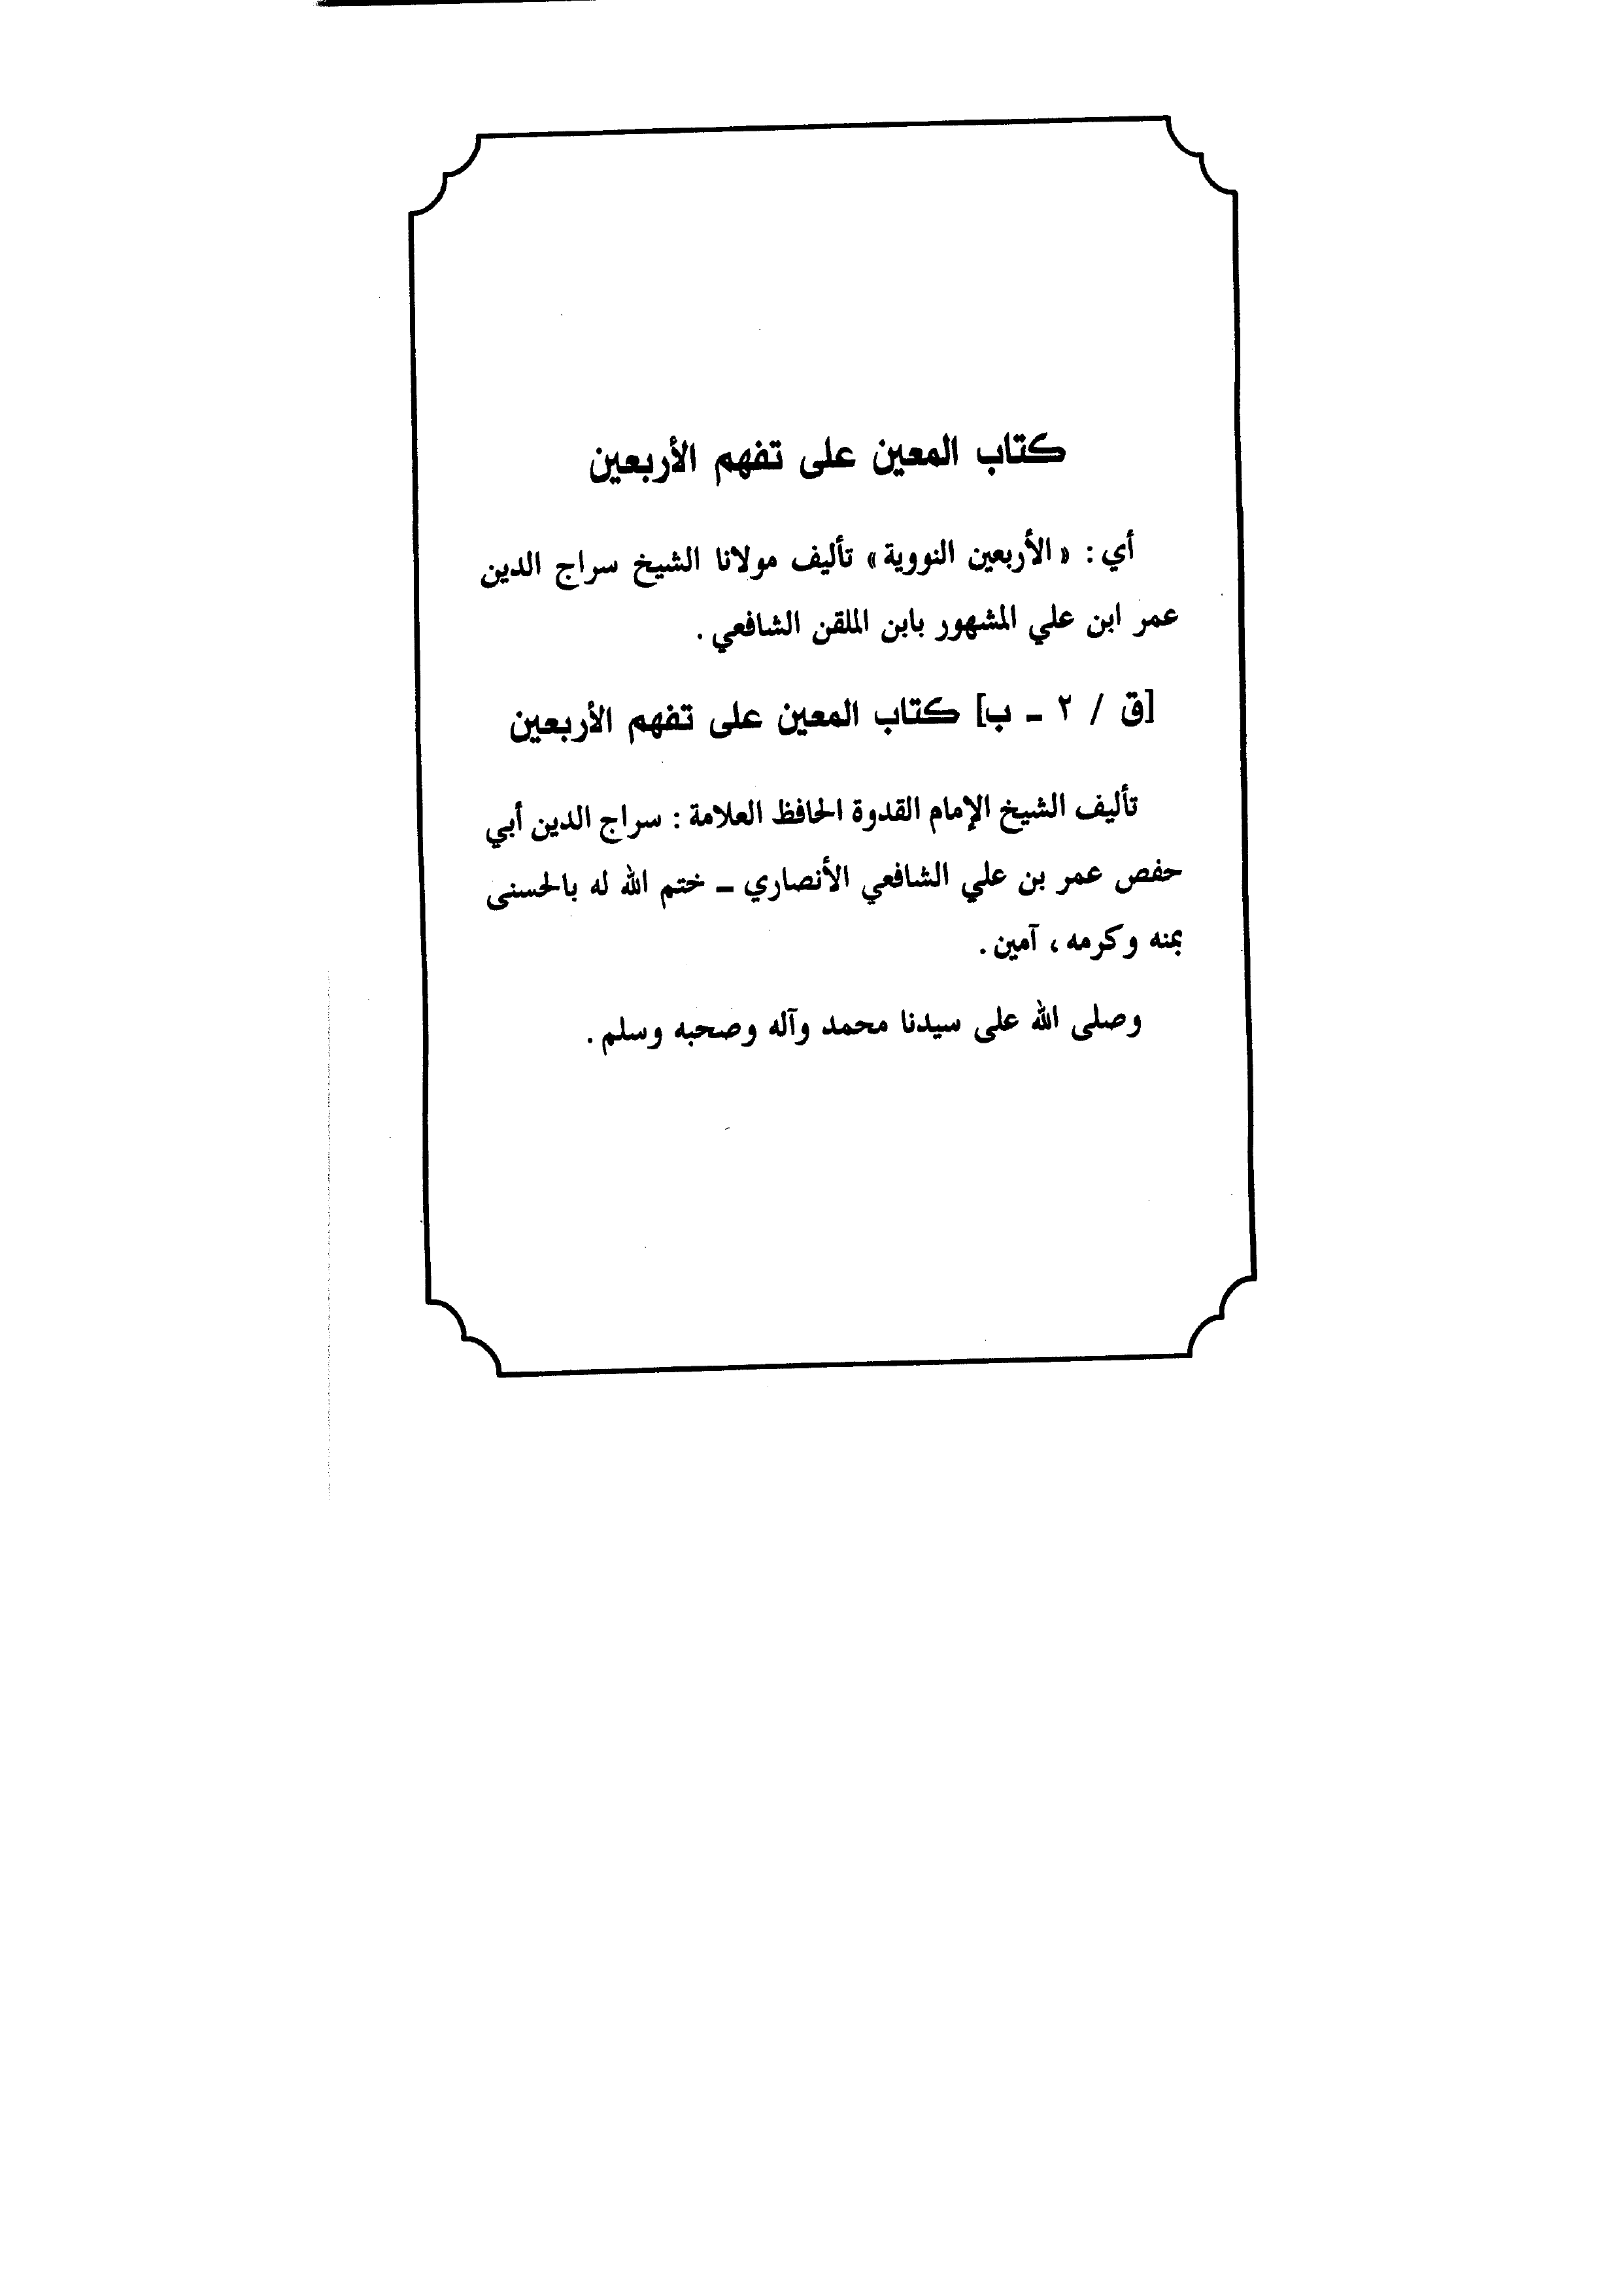 كتاب المعين على تفهم الأربعين
أي : « الأربعين النووية » تأليف مولانا الشيخ سراج الدين
عمر ابن علي المشهور بابن الملقن الشافعي .
[ق / ٢ ـ ب] كتاب المعين على تفهم الأربعين
تأليف الشيخ الإمام القدوة الحافظ العلامة : سراج الدين أبي
حفص عمر بن علي الشافعي الأنصاري ـ ختم الله له بالحسنى
بمنه وكرمه ، آمين .
وصلى الله على سيدنا محمد وآله وصحبه وسلم .